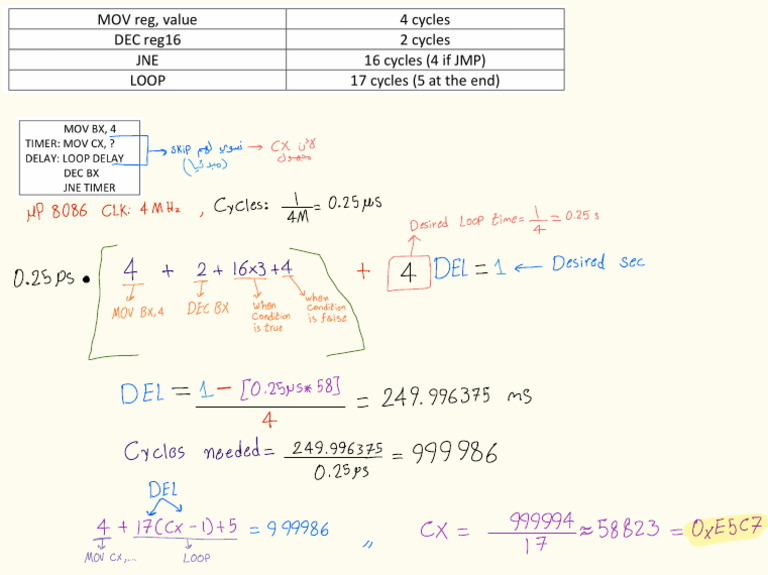 MOV reg, value 4 cycles
DEC reg16 2 cycles
JNE 16 cycles (4 if JMP)
LOOP 17 cycles (5 at the end)
MOV BX, 4
TIMER: MOV CX, ?
DELAY: LOOP DELAY
DEC BX
JNE TIMER
→ skip نسوي لهم → CX لأن
(مبدئيا) مجهول
μP 8086 CLK: 4 MHz , Cycles: 1/4M = 0.25 μs
Desired Loop time = 1/4 = 0.25 s
0.25 ps • [ 4 + 2 + 16×3 + 4 ] + 4 DEL = 1 ← Desired sec
MOV BX, 4 DEC BX when Condition is true when Condition is false
DEL = 1 - [0.25μs * 58] / 4 = 249.996375 ms
Cycles needed = 249.996375 / 0.25 ps = 999986
DEL
4 + 17(Cx - 1) + 5 = 999986 ,, CX = 999994 / 17 ≈ 58823 = 0xE5C7
MOV CX,... LOOP